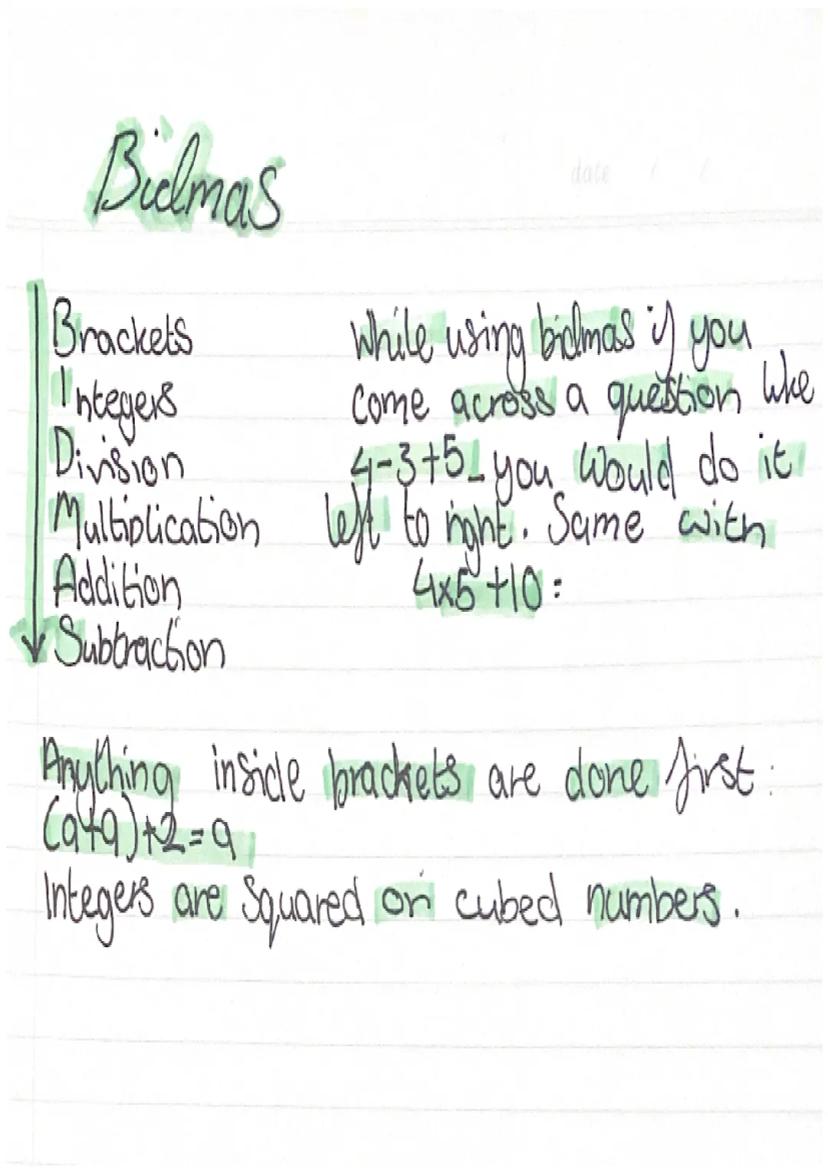 Bidmas
date / /
Brackets
Integers
Division
Multiplication
Addition
Subtraction
While using bidmas if you
come across a question like
4-3+5_ you would do it
left to right. Same with
4x5+10:
Anything inside brackets are done first:
(9+9)÷2=9
Integers are squared or cubed numbers.